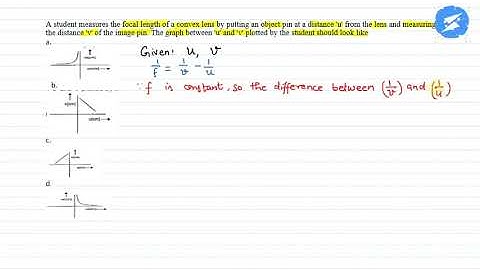 A student measures the focal length of a convex lens by putting an object pin at a distance 'u' from the lens and measuring
the distance 'v' of the image pin. The graph between 'u' and 'v' plotted by the student should look like
a.
Given: u, v
1/f = 1/v - 1/u
b.
∵ f is constant, so the difference between (1/v) and (1/u)
c.
d.